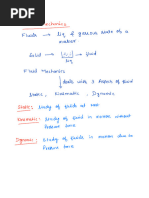 Mechanics
Fluids → liq & gaseous state of a
matter
Solid → → fluid
Liq
Fluid Mechanics
deals with 3 aspect of fluid
Static, Kinematic, Dynamic
Static: Study of fluids at rest
Kinematic: Study of fluid in motion without
Pressure force
Dynamic: Study of fluids in motion due to
Pressure force